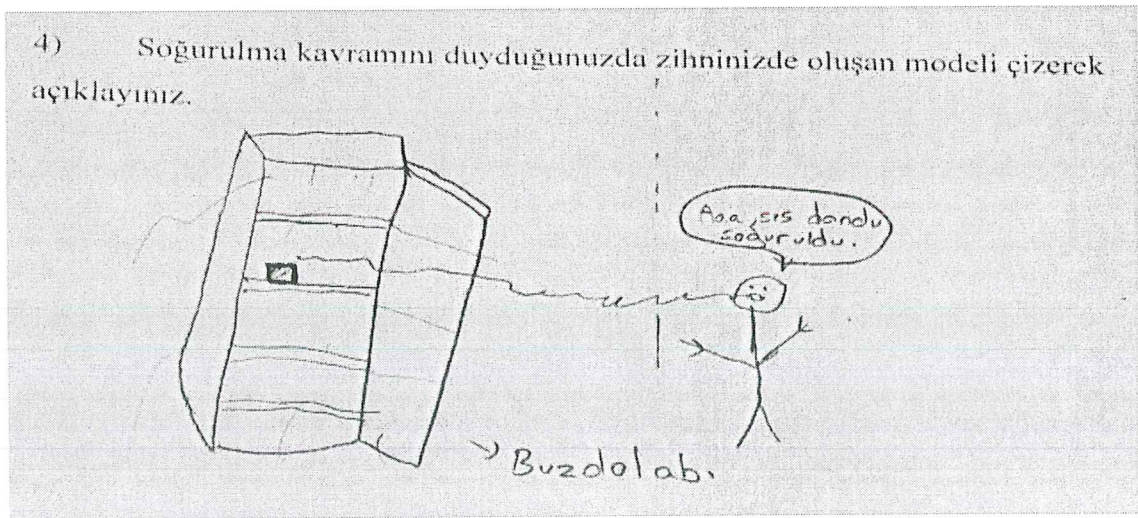 4) Soğurulma kavramını duyduğunuzda zihninizde oluşan modeli çizerek
açıklayınız.
Aaa ses dondu
soğuruldu.
Buzdolabı